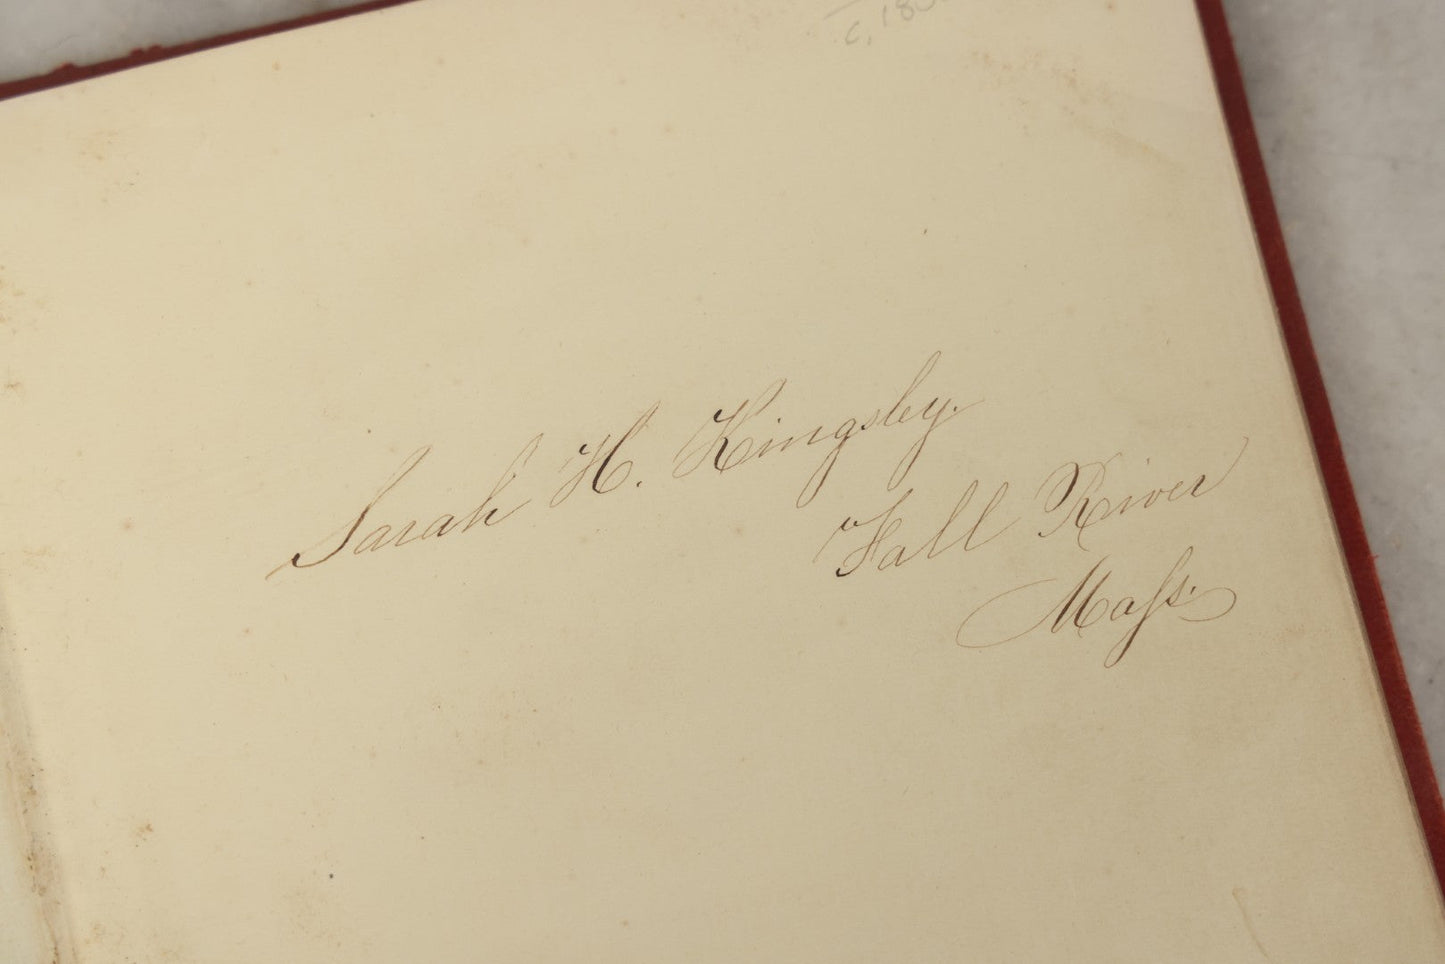 c. 18
Sarah H. Kingsley.
Fall River
Mass.